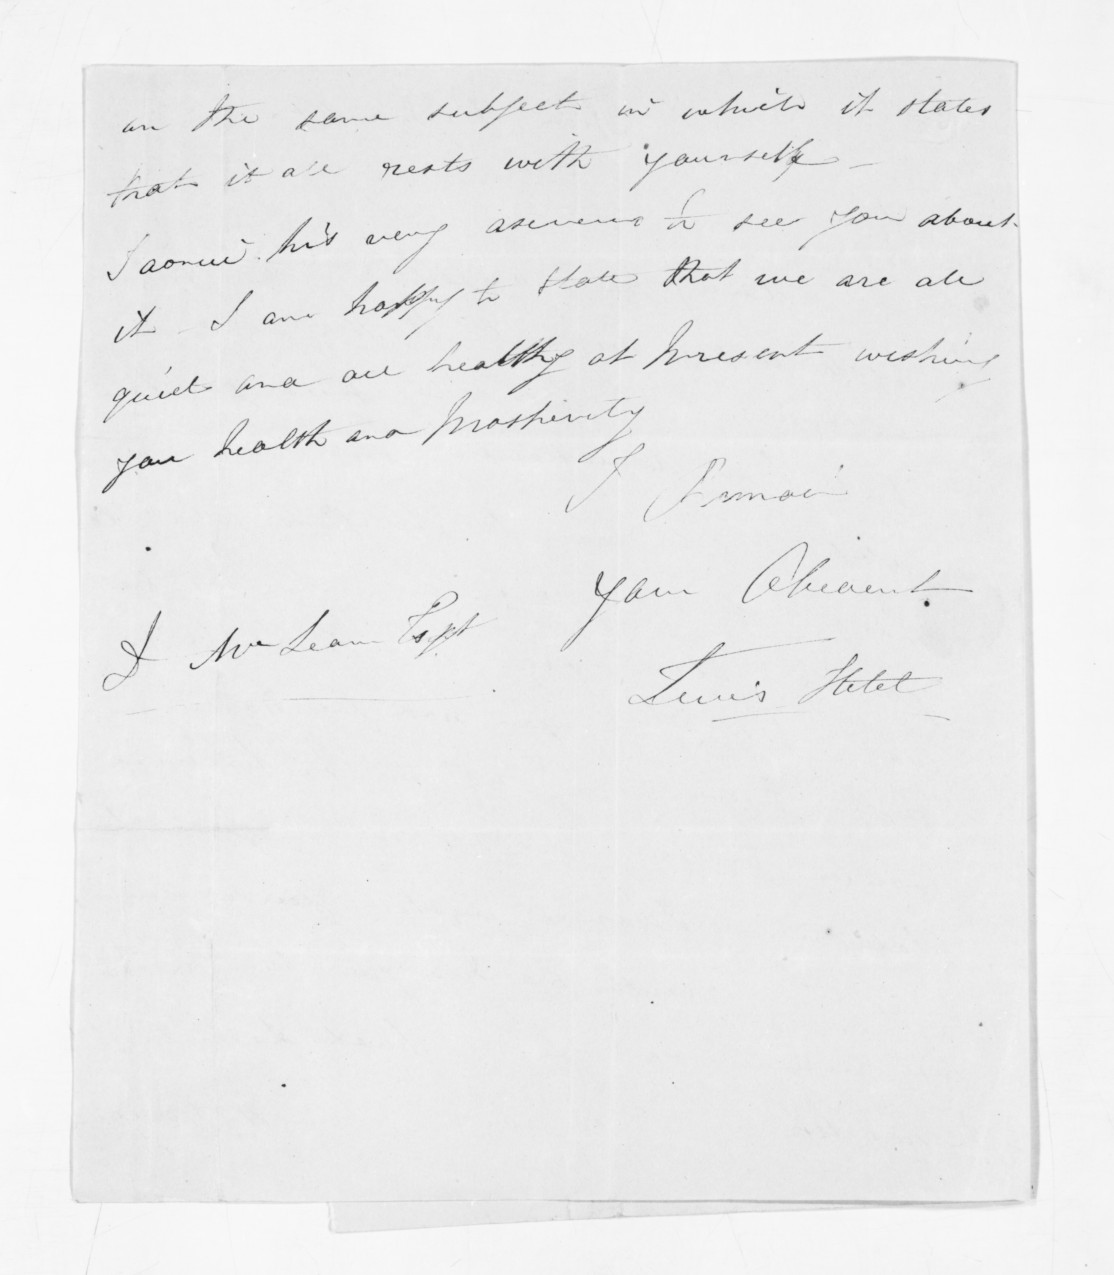 on the same subject in which it states
that it all rests with yourself —
his very to see you about
it - I am happy to state that we are all
quiet and all healthy at present wishing
you health and Prosperity
I Remain
Your Obedient
McLean Esqr
Lewis